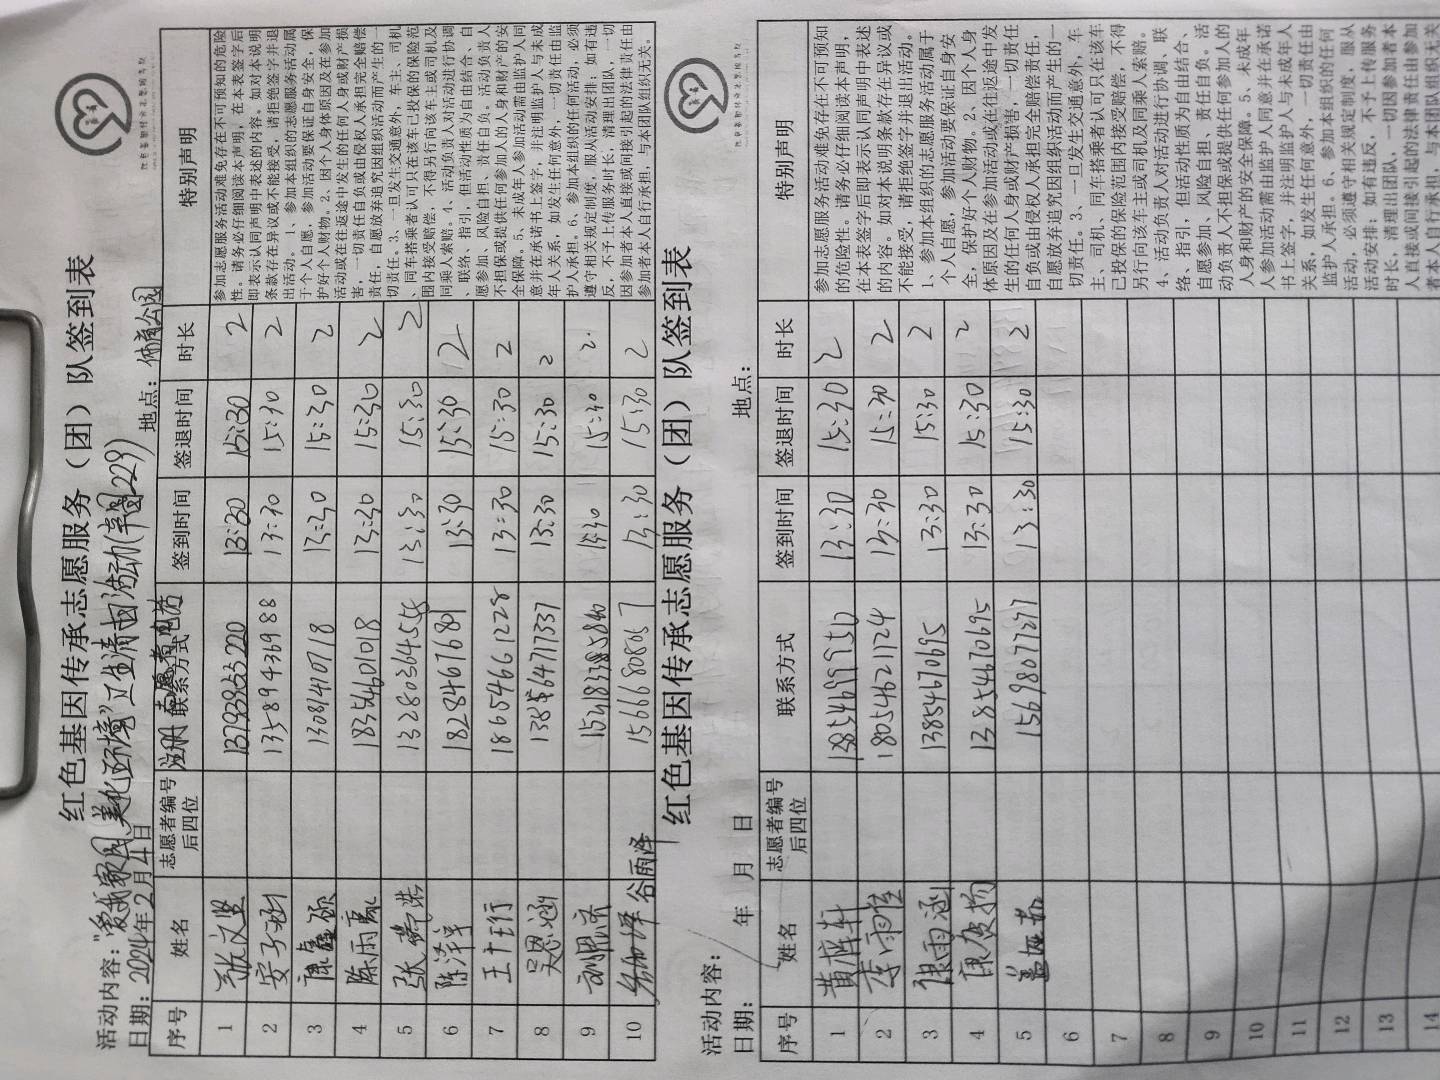 红色基因传承志愿服务（团）队签到表
活动内容："爱我家园,美化环境"卫生清扫活动(寒假223)
日期：2024年2月4日 地点：体育公园
序号 姓名 志愿者编号后四位 联系方式 签到时间 签退时间 时长 特别声明
1 张文昱 13793983220 13:30 15:30 2
2 13589436988 13:30 15:30 2
3 康鑫硕 13:30 15:30 2
4 陈雨豪 18354601018 13:30 15:30 2
5 13280364558 13:30 15:30 2
6 陈泽宇 18284676789 13:30 15:30 2
7 18654661228 13:30 15:30 2
8 吴恩涵 138564717337 13:30 15:30 2
9 13:30 15:30 2
10 谷雨泽 15666808067 13:30 15:30 2
参加志愿服务活动难免存在不可预知的危险
性。请务必仔细阅读本声明，在本表签字后
即表示认同声明中表述的内容。如对本说明
条款存在异议或不能接受，请拒绝签字并退
出活动。1、参加本组织的志愿服务活动属
于个人自愿，参加活动要保证自身安全，保
护好个人财物。2、因个人身体原因及在参加
活动或在往返途中发生的任何人身或财产损
害，一切责任自负或由侵权人承担完全赔偿
责任，自愿放弃追究因组织活动而产生的一
切责任。3、一旦发生交通意外，车主、司机
、同车搭乘者认可只在该车已投保的保险范
围内接受赔偿，不得另行向该车主或司机及
同乘人索赔。4、活动负责人对活动进行协调
、联络、指引，但活动性质为自由结合、自
愿参加、风险自担、责任自负。活动负责人
不担保或提供任何参加人的人身和财产的安
全保障。5、未成年人参加活动需由监护人同
意并在承诺书上签字，并注明监护人与未成
年人关系，如发生任何意外，一切责任由监
护人承担。6、参加本组织的任何活动，必须
遵守相关规定制度，服从活动安排；如有违
反，不予上传服务时长，清理出团队，一切
因参加者本人直接或间接引起的法律责任由
参加者本人自行承担，与本团队组织无关。
红色基因传承志愿服务（团）队签到表
活动内容：
日期： 年 月 日 地点：
序号 姓名 志愿者编号后四位 联系方式 签到时间 签退时间 时长 特别声明
1 黄梓轩 13:30 15:30 2
2 李雨桂 18054621124 13:30 15:30 2
3 张雨涵 13854670695 13:30 15:30 2
4 康贺扬 13854670695 13:30 15:30 2
5 15698077277 13:30 15:30 2
6
7
8
9
10
11
12
13
14
参加志愿服务活动难免存在不可预知
的危险性。请务必仔细阅读本声明，
在本表签字后即表示认同声明中表述
的内容。如对本说明条款存在异议或
不能接受，请拒绝签字并退出活动。
1、参加本组织的志愿服务活动属于
个人自愿，参加活动要保证自身安
全，保护好个人财物。2、因个人身
体原因及在参加活动或在往返途中发
生的任何人身或财产损害，一切责任
自负或由侵权人承担完全赔偿责任，
自愿放弃追究因组织活动而产生的一
切责任。3、一旦发生交通意外，车
主、司机、同车搭乘者认可只在该车
已投保的保险范围内接受赔偿，不得
另行向该车主或司机及同乘人索赔。
4、活动负责人对活动进行协调、联
络、指引，但活动性质为自由结合、
自愿参加、风险自担、责任自负。活
动负责人不担保或提供任何参加人的
人身和财产的安全保障。5、未成年
人参加活动需由监护人同意并在承诺
书上签字，并注明监护人与未成年人
关系，如发生任何意外，一切责任由
监护人承担。6、参加本组织的任何
活动，必须遵守相关规定制度，服从
活动安排；如有违反，不予上传服务
时长，清理出团队，一切因参加者本
人直接或间接引起的法律责任由参加
者本人自行承担，与本团队组织无关